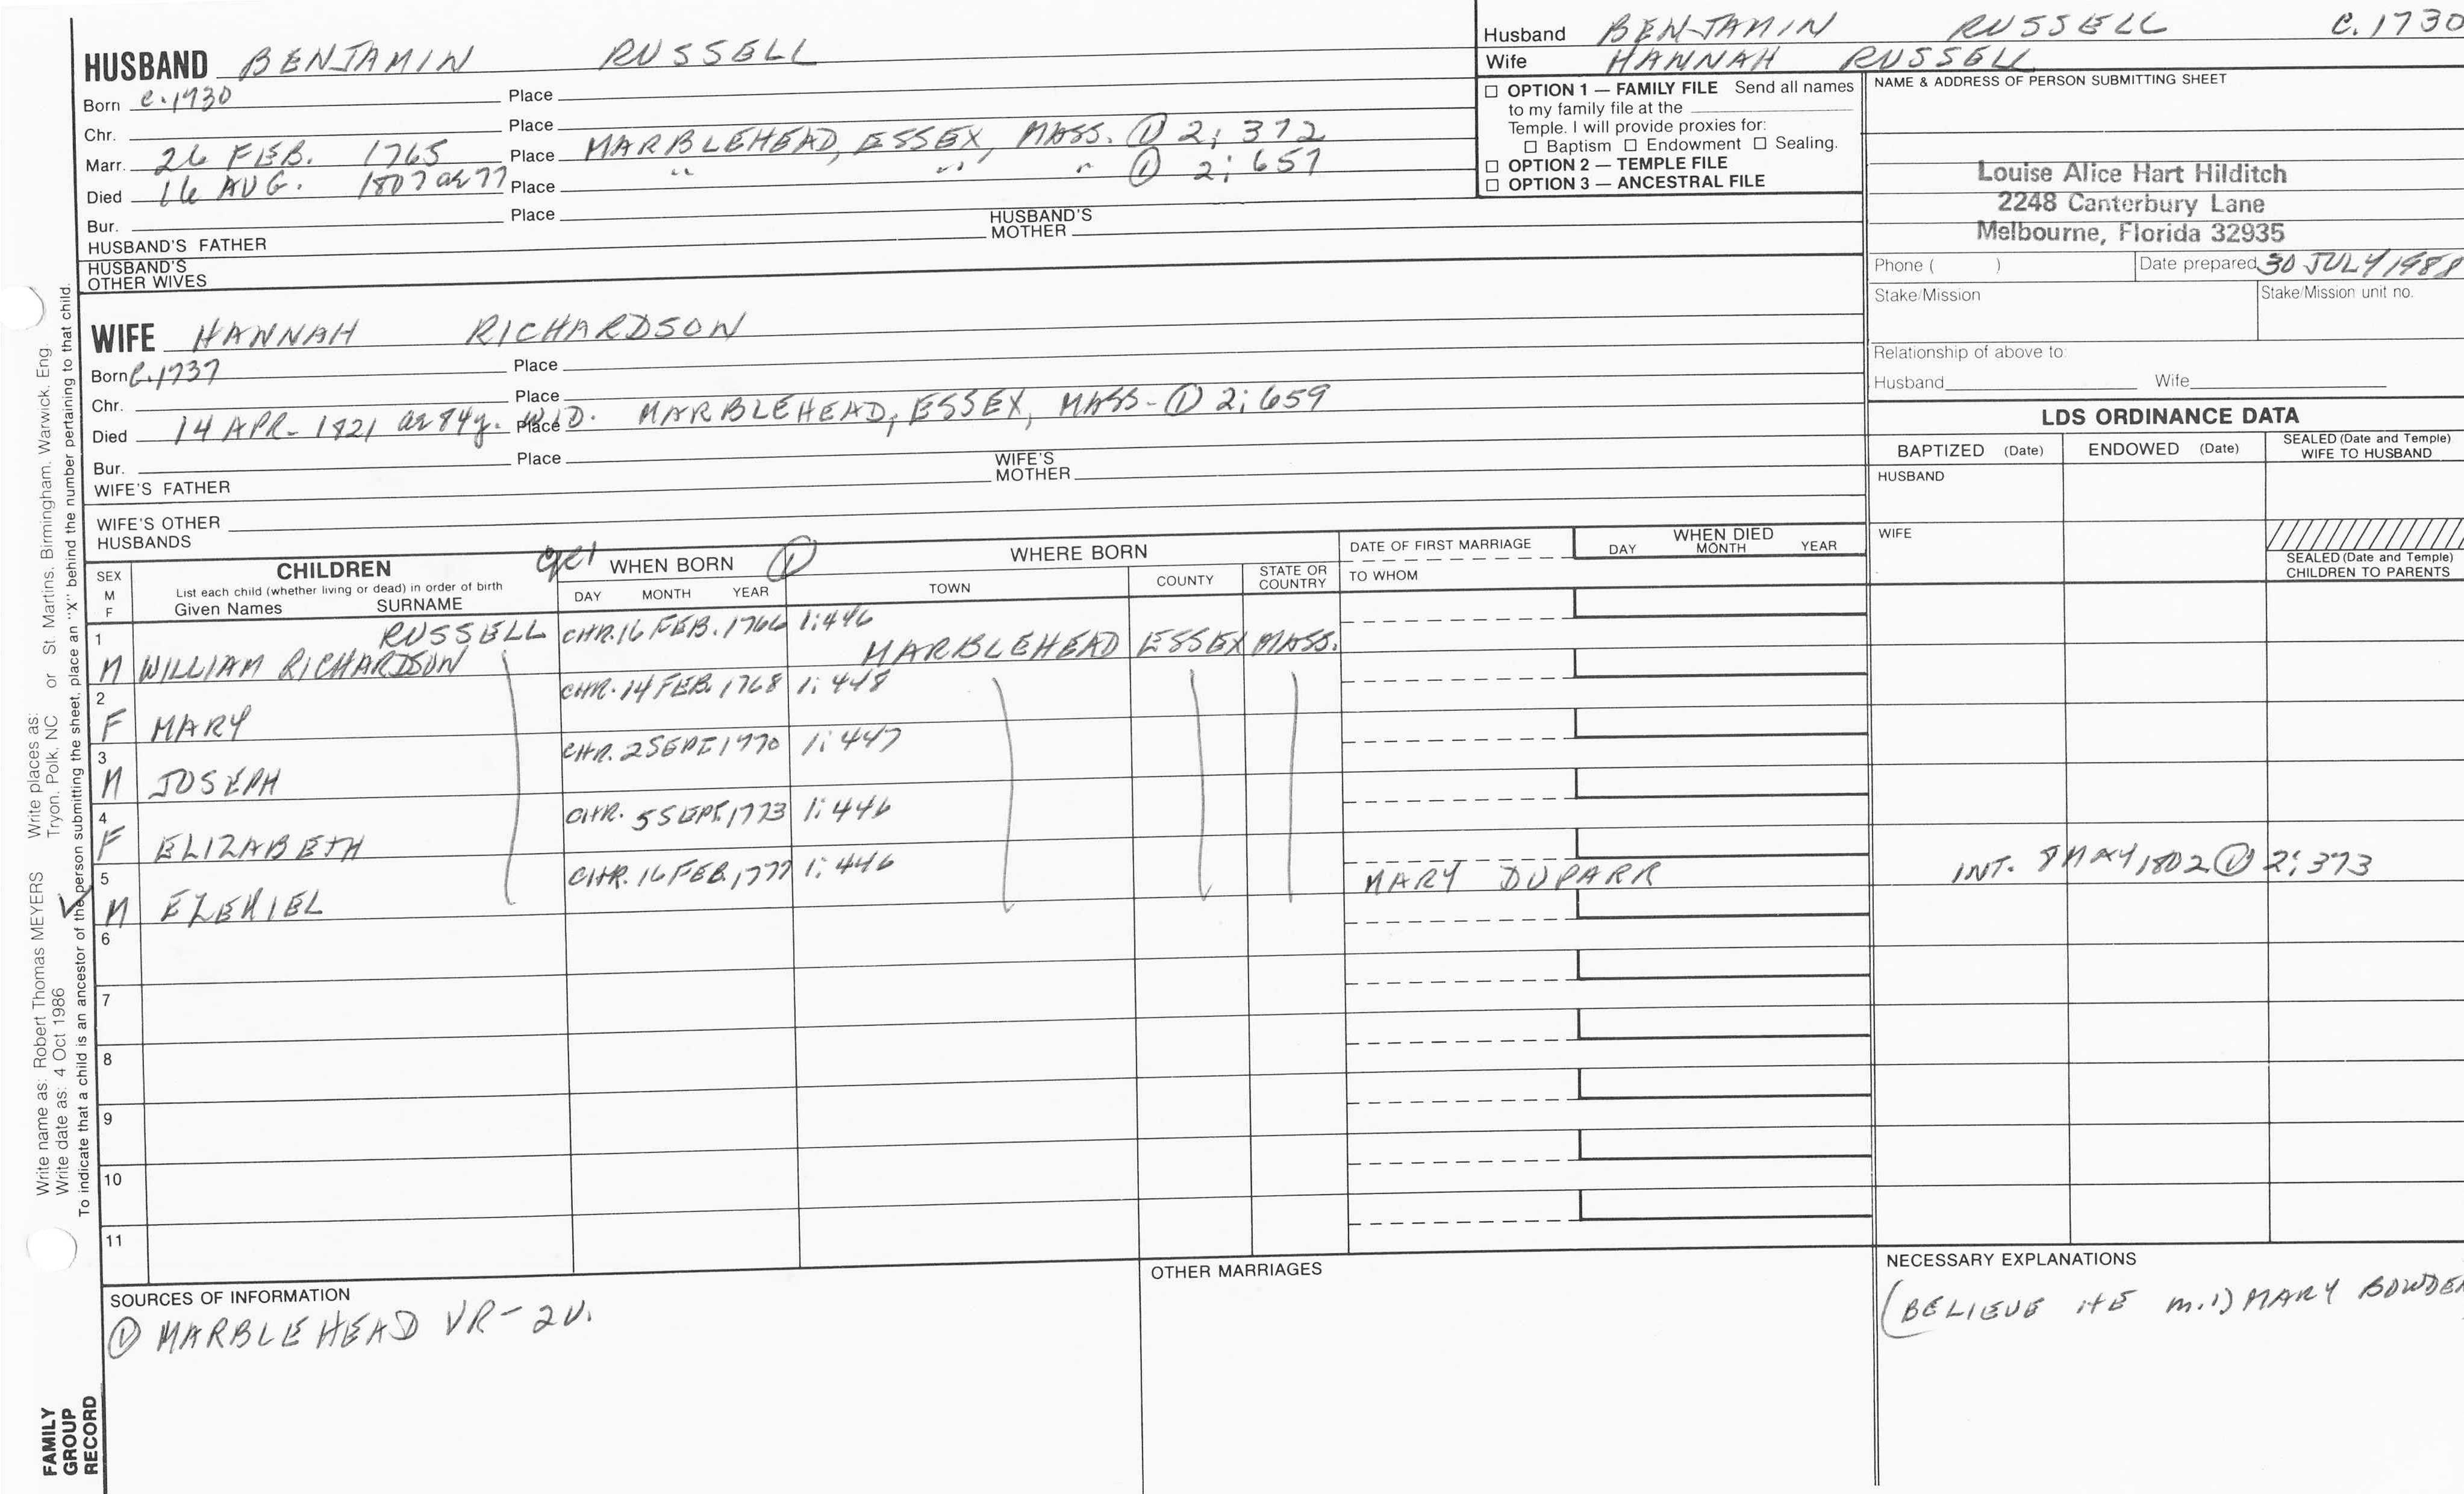 HUSBAND BENJAMIN RUSSELL
Born c.1730 Place
Chr. Place
Marr. 26 FEB. 1765 Place MARBLEHEAD, ESSEX, MASS. ① 2; 372
Died 16 AUG. 1807 ae 77 Place " " " ① 2; 657
Bur. Place
HUSBAND'S FATHER HUSBAND'S MOTHER
HUSBAND'S OTHER WIVES
WIFE HANNAH RICHARDSON
Born c.1737 Place
Chr. Place
Died 14 APR- 1821 ae 84y. Place WID. MARBLEHEAD, ESSEX, MASS- ① 2; 659
Bur. Place
WIFE'S FATHER WIFE'S MOTHER
WIFE'S OTHER HUSBANDS
Husband BENJAMIN RUSSELL c.1730
Wife HANNAH RUSSELL
☐ OPTION 1 — FAMILY FILE Send all names
to my family file at the
Temple. I will provide proxies for:
☐ Baptism ☐ Endowment ☐ Sealing.
☐ OPTION 2 — TEMPLE FILE
☐ OPTION 3 — ANCESTRAL FILE
NAME & ADDRESS OF PERSON SUBMITTING SHEET
Louise Alice Hart Hilditch
2248 Canterbury Lane
Melbourne, Florida 32935
Phone ( ) Date prepared 30 JULY 1988
Stake/Mission Stake/Mission unit no.
Relationship of above to:
Husband Wife
LDS ORDINANCE DATA
BAPTIZED (Date) ENDOWED (Date) SEALED (Date and Temple) WIFE TO HUSBAND
HUSBAND
WIFE
SEALED (Date and Temple) CHILDREN TO PARENTS
SEX M F
CHILDREN
List each child (whether living or dead) in order of birth
Given Names SURNAME
WHEN BORN ①
DAY MONTH YEAR
WHERE BORN
TOWN COUNTY STATE OR COUNTRY
DATE OF FIRST MARRIAGE
TO WHOM
WHEN DIED
DAY MONTH YEAR
1 RUSSELL CHR. 16 FEB. 1766 1:446
M WILLIAM RICHARDSON MARBLEHEAD ESSEX MASS.
2 CHR. 14 FEB. 1768 1: 448
F MARY
3 CHR. 2 SEPT 1770 1: 447
M JOSEPH
4 CHR. 5 SEPT. 1773 1: 446
F ELIZABETH
5 CHR. 16 FEB. 1777 1: 446 MARY DUPARR INT. 8 MAY 1802 ① 2; 373
M EZEKIEL
6
7
8
9
10
11
SOURCES OF INFORMATION
① MARBLEHEAD VR- 2V.
OTHER MARRIAGES
NECESSARY EXPLANATIONS
(BELIEVE HE m.1) MARY BOWDEN
Write name as: Robert Thomas MEYERS Write places as:
Write date as: 4 Oct 1986 Tryon, Polk, NC or St. Martins, Birmingham, Warwick, Eng.
To indicate that a child is an ancestor of the person submitting the sheet, place an "X" behind the number pertaining to that child.
FAMILY
GROUP
RECORD